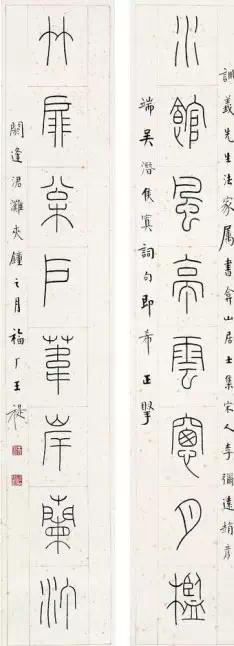 訓義先生法家属書弇山居士集宋人李彌遜趙彥
水館風亭雲窗月檻
端吴潛侯寘詞句即希正掔
竹扉松戶葦岸蘭汀
閼逢涒灘夾鍾之月福厂王禔